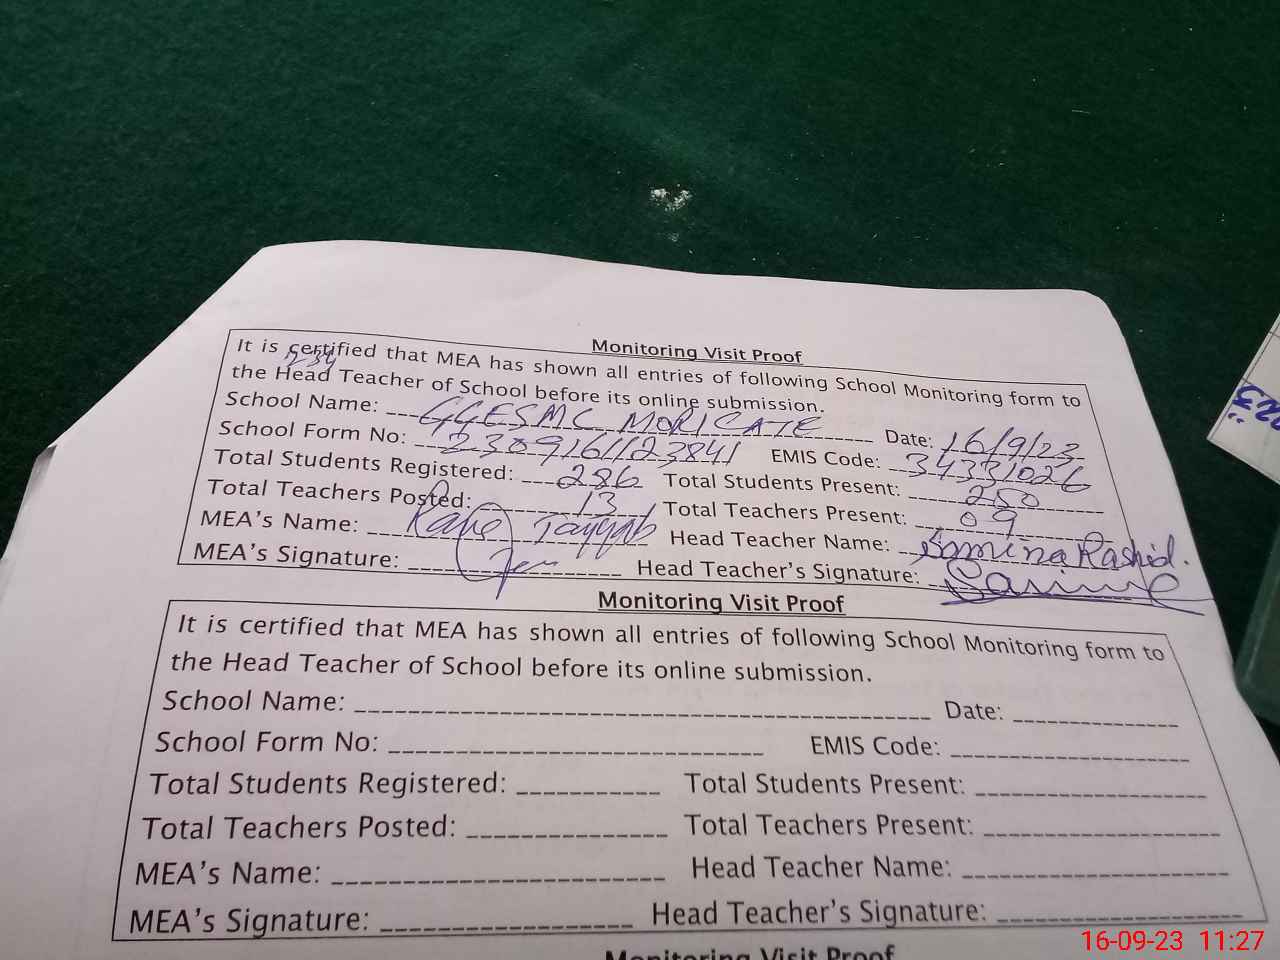 Monitoring Visit Proof
It is certified that MEA has shown all entries of following School Monitoring form to
the Head Teacher of School before its online submission.
School Name: GGESMC MORICATE Date: 16/9/23
School Form No: 2309161123841 EMIS Code: 34331026
Total Students Registered: 286 Total Students Present: 250
Total Teachers Posted: 13 Total Teachers Present: 09
MEA's Name: Tayyab Head Teacher Name: Samina Rashid.
MEA's Signature: Head Teacher's Signature:
Monitoring Visit Proof
It is certified that MEA has shown all entries of following School Monitoring form to
the Head Teacher of School before its online submission.
School Name: Date:
School Form No: EMIS Code:
Total Students Registered: Total Students Present:
Total Teachers Posted: Total Teachers Present:
MEA's Name: Head Teacher Name:
MEA's Signature: Head Teacher's Signature:
Monitoring Visit Proof
16-09-23 11:27